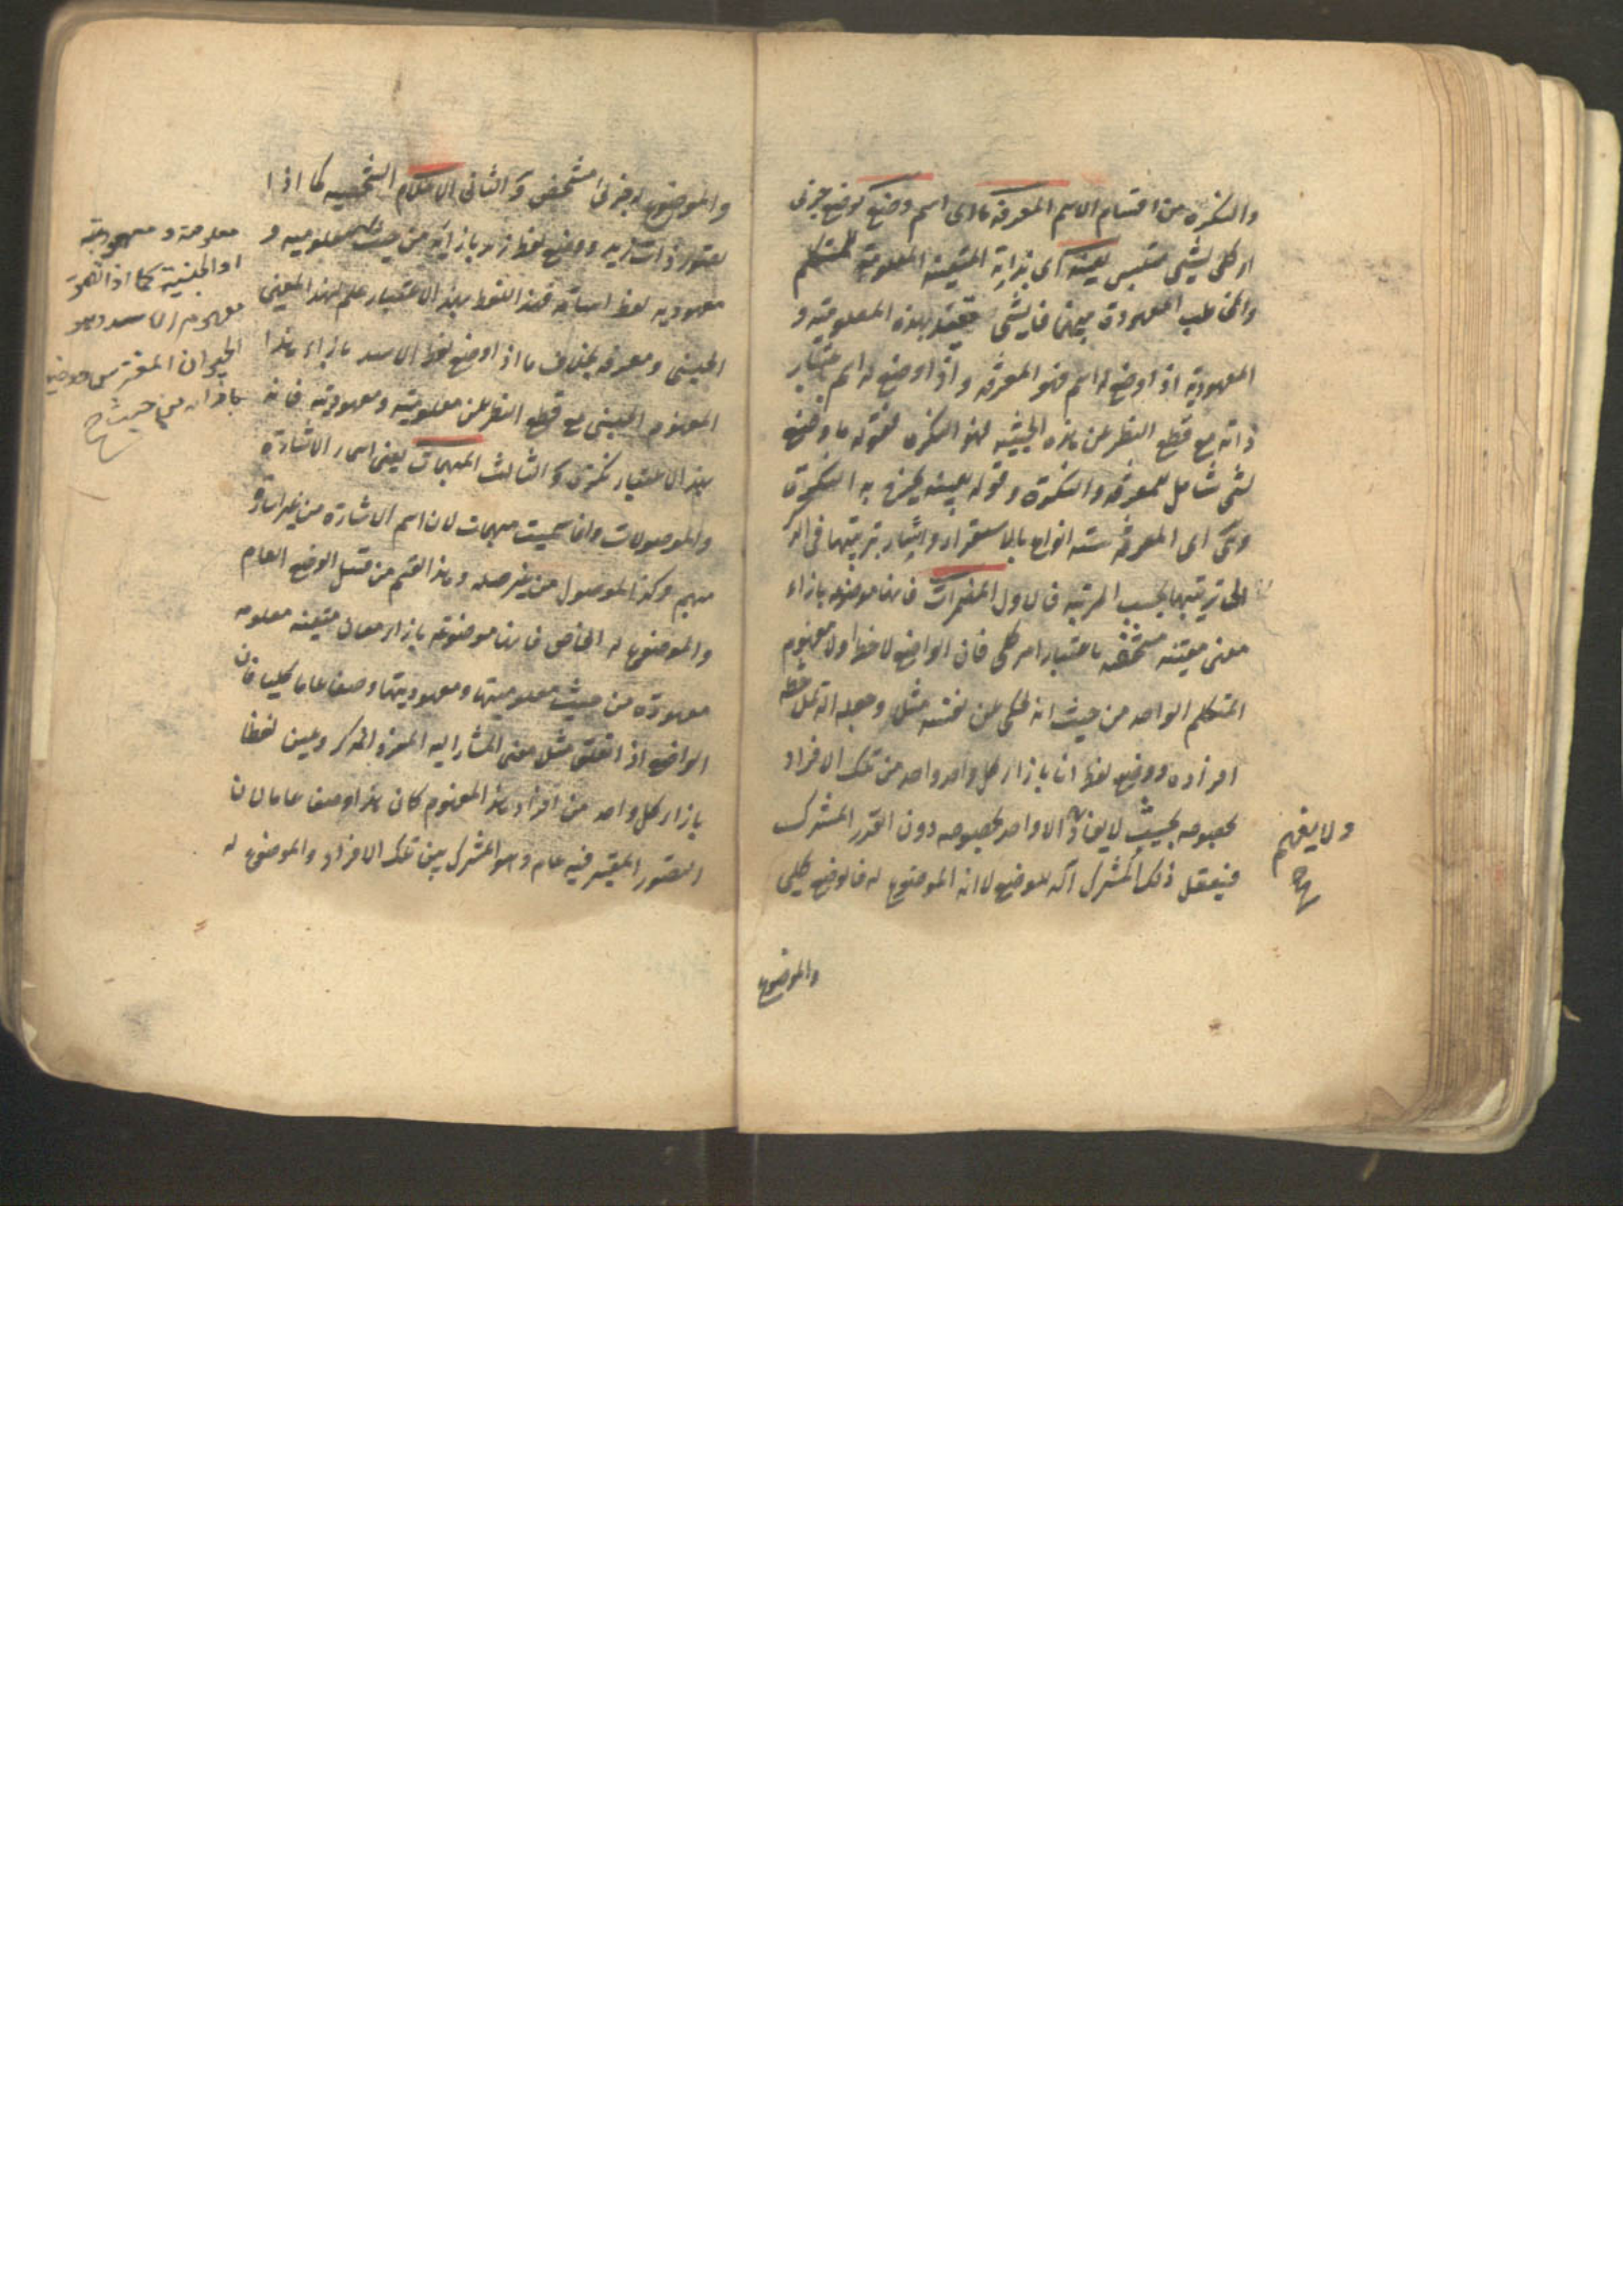 والنكرة من اقسام الاسم المعرفة ما اى اسم وضع كوضع جزئى
او كلى لشئ متلبس بعينه اى بذاته المتعينة المعلومة للمتكلم
والمخاطب المعهودة بينهما فالشئ مقيد بهذه المعلومية و
المعهودية اذا وضع له اسم فهو المعرفة واذا وضع له اسم باعتبار
ذاته مع قطع النظر عن هذه الحيثية فهو النكرة فقوله ما وضع
لشئ شامل للمعرفة والنكرة وقوله بعينه يخرج به النكرة
وهى اى المعرفة ستة انواع بالاستقراء واشار بترتيبها فى الذكر
الى ترتيبها بحسب المرتبة فالاول المضمرات فانها موضوعة بازاء
معنى معينة مشخصة باعتبار امر كلى فان الواضع لاحظ اولا مفهوم
المتكلم الواحد من حيث انه يحكى عن نفسه مثلا وجعله آلة لملاحظة
افراده ووضع لفظ انا بازاء كل واحد واحد من تلك الافراد
بخصوصه بحيث لا يفاد الا واحد بخصوصه دون القدر المشترك
فيتعقل ذلك المشترك آلة للوضع لا انه الموضوع له فالوضع كلى
ولا يفهم
صح
والموضوع
والموضوع له جزئى مشخص والثانى الاعلام الشخصية كما اذا
تصور ذات زيد ووضع لفظ زيد بازائه من حيث معلوميته و
معهوديته لفظ اسامة فهذا اللفظ بهذا الاعتبار علم لهذا المعنى
الجنسى ومعرفة بخلاف ما اذا وضع لفظ الاسد بازاء هذا
المفهوم الجنسى مع قطع النظر عن معلوميته ومعهوديته فانه
بهذا الاعتبار نكرة والثالث المبهمات يعنى اسماء الاشارة
والموصولات وانما سميت مبهمات لان اسم الاشارة من غير اشارة
مبهم وكذا الموصول من غير صلة وهذا القسم من قبيل الوضع العام
والموضوع له الخاص فانها موضوعة بازاء معان متعينة معلومة
معهودة من حيث معلوميتها ومعهوديتها وضعا عاما كليا فان
الواضع اذا تعقل مثلا معنى المشار اليه المفرد المذكر وعين لفظا
بازاء كل واحد من افراد هذا المفهوم كان هذا وضعا عاما لان
التصور المعتبر فيه عام وهو المشترك بين تلك الافراد والموضوع له
معلومة ومعهودية
او الجنسية كما اذا تصور
مفهوم الاسد وهو
الحيوان المفترس ووضع
بازائه من حيث صح